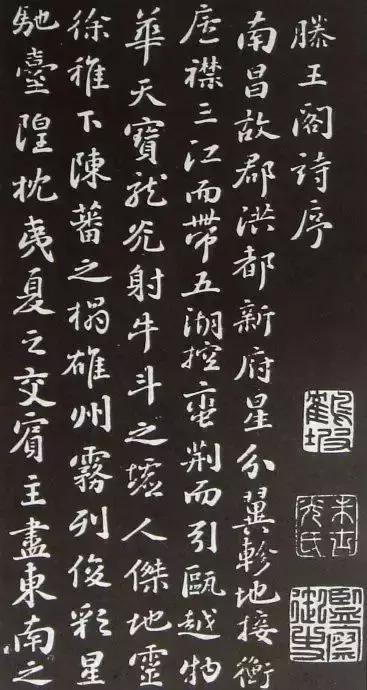 滕王閣詩序
南昌故郡洪都新府星分翼軫地接衡
廬襟三江而帶五湖控蠻荆而引甌越物
華天寶龍光射牛斗之墟人傑地靈
徐稚下陳蕃之榻雄州霧列俊彩星
馳臺隍枕夷夏之交賓主盡東南之
鶴坡
監察御史